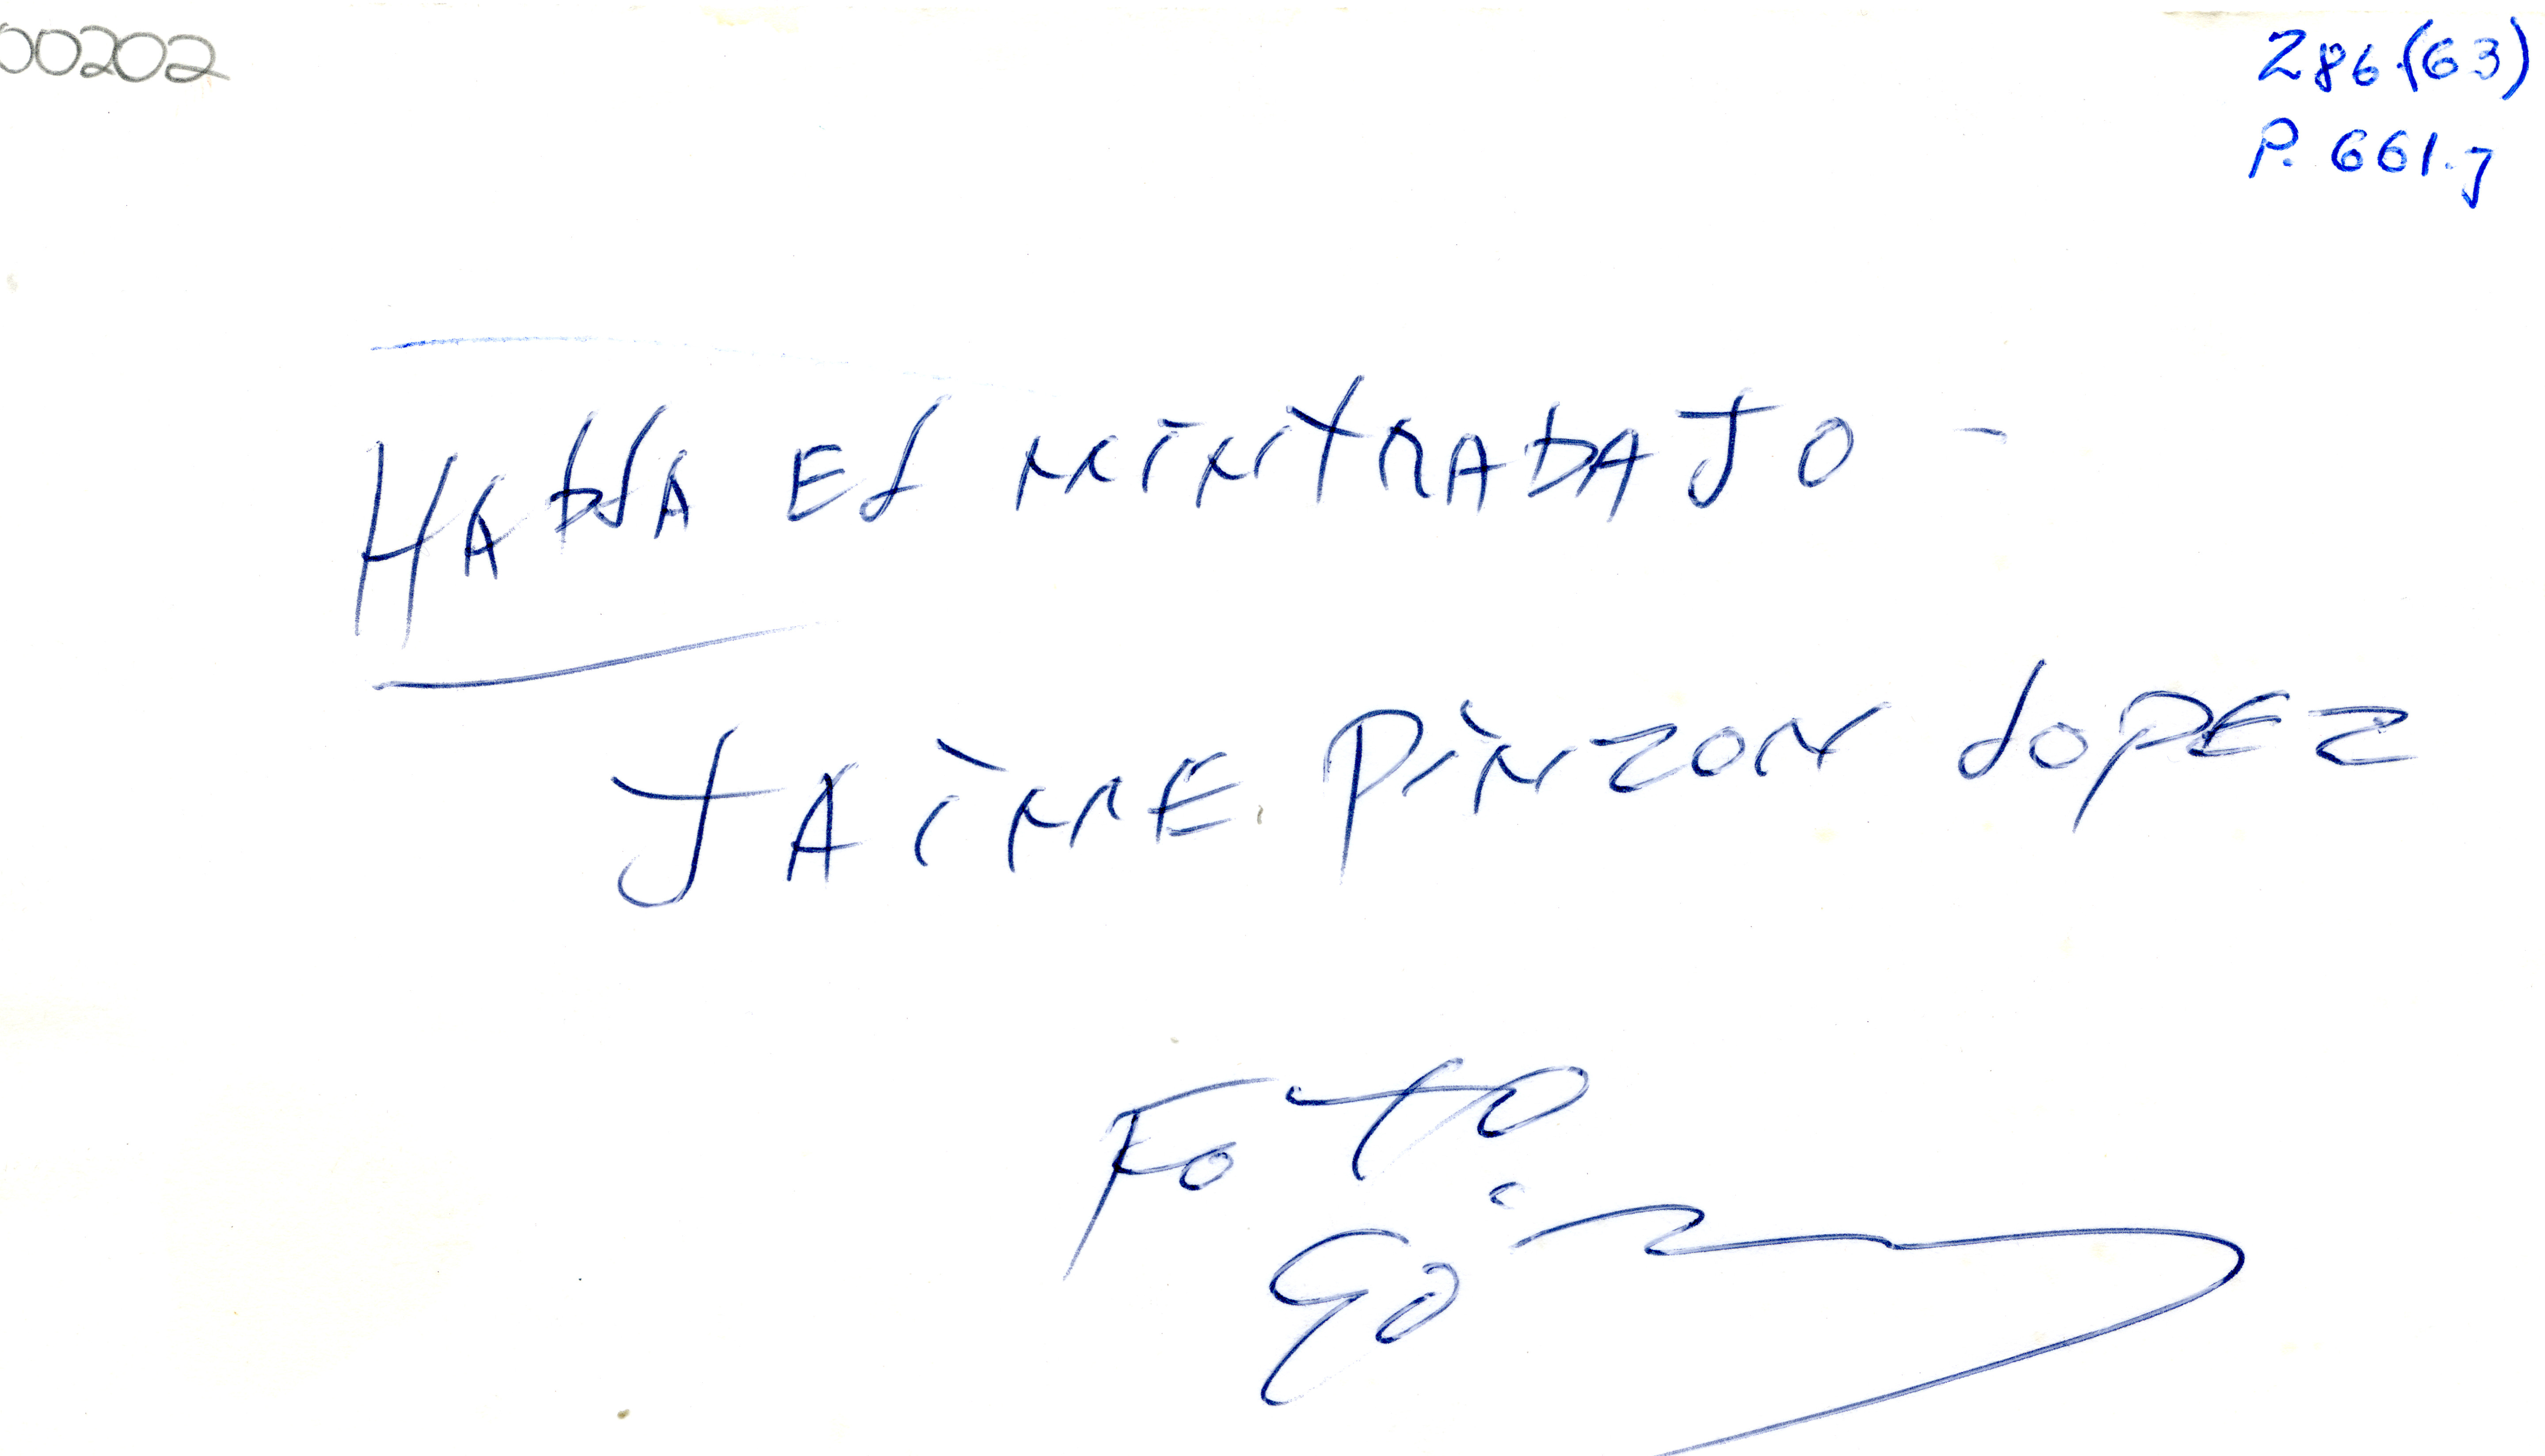 00202
286(63)
P. 661.J
HABLA EL MINTRABAJO -
JAIME PINZON LOPEZ
FOTO